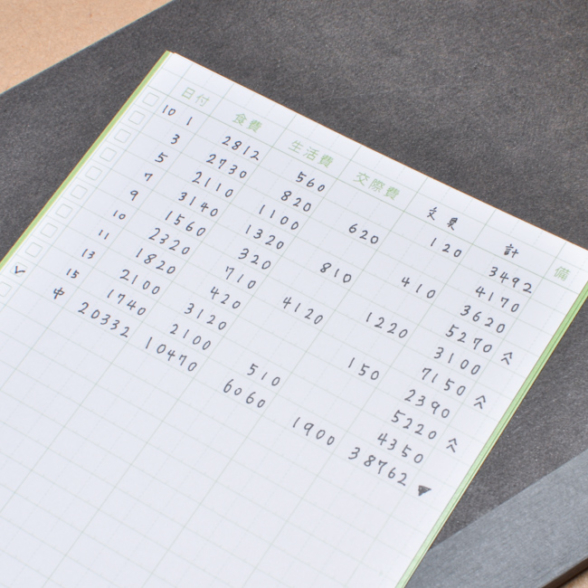 日付 食費 生活費 交際費 文具 計 備
10 1 2812 560 120 3492
3 2730 820 620 4170
5 2110 1100 410 3620
7 3140 1320 810 5270
9 1560 320 1220 3100
10 2320 710 4120 7150
11 1820 420 150 2390
13 2100 3120 5220
15 1740 2100 510 4350
中 20332 10470 6060 1900 38762